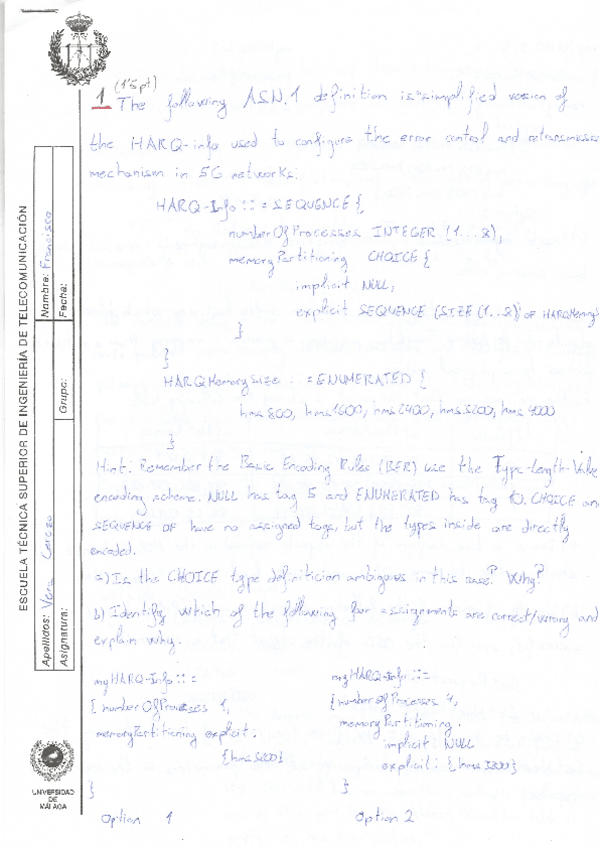 ESCUELA TÉCNICA SUPERIOR DE INGENIERÍA DE TELECOMUNICACIÓN
Apellidos: Vera Cerezo
Nombre: Francisco
Asignatura:
Grupo:
Fecha:
UNIVERSIDAD
DE
MÁLAGA
(1'5 pt)
1 The following ASN.1 definition is a simplified version of
the HARQ-info used to configure the error control and retransmission
mechanism in 5G networks:
HARQ-Info ::= SEQUENCE {
numberOfProcesses INTEGER (1...8),
memoryPartitioning CHOICE {
implicit NULL,
explicit SEQUENCE (SIZE (1...8)) OF HARQMemoryS
}
}
HARQMemorySize ::= ENUMERATED {
hms800, hms1600, hms2400, hms3200, hms4000
}
Hint: Remember the Basic Encoding Rules (BER) use the Type-Length-Value
encoding scheme. NULL has tag 5 and ENUMERATED has tag 10. CHOICE and
SEQUENCE OF have no assigned tags, but the types inside are directly
encoded.
a) Is the CHOICE type definition ambiguous in this case? Why?
b) Identify which of the following four assignments are correct/wrong and
explain why.
myHARQ-Info ::=
{ numberOfProcesses 1,
memoryPartitioning explicit:
{hms3200}
}
Option 1
myHARQ-Info ::=
{ numberOfProcesses 4,
memoryPartitioning
implicit: NULL
explicit: {hms3200}
}
Option 2